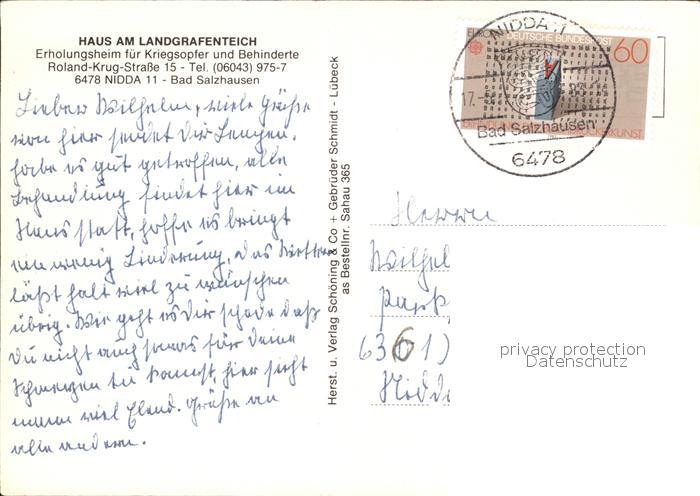 HAUS AM LANDGRAFENTEICH
Erholungsheim für Kriegsopfer und Behinderte
Roland-Krug-Straße 15 - Tel. (06043) 975-7
6478 NIDDA 11 - Bad Salzhausen
Lieber Wilhelm, viele Grüße
von hier sendet Dir
habe es gut getroffen, alle
Behandlung findet hier im
Haus statt, hoffe es bringt
ein wenig Linderung, das Wetter
läßt halt viel zu wünschen
übrig. Wie geht es Dir schade daß
Du nicht auch sowas für Deine
Schmerzen tun kannst, hier sieht
mann viel Elend. Grüße an
alle andern.
Herst. u. Verlag Schöning & Co + Gebrüder Schmidt - Lübeck
as Bestellnr. Sahau 365
EUROPA DEUTSCHE BUNDESPOST
60
NIDDA 1
17.
Bad Salzhausen
6478
Herrn
Wilhel
Park
6361)
Nidd
privacy protection
Datenschutz